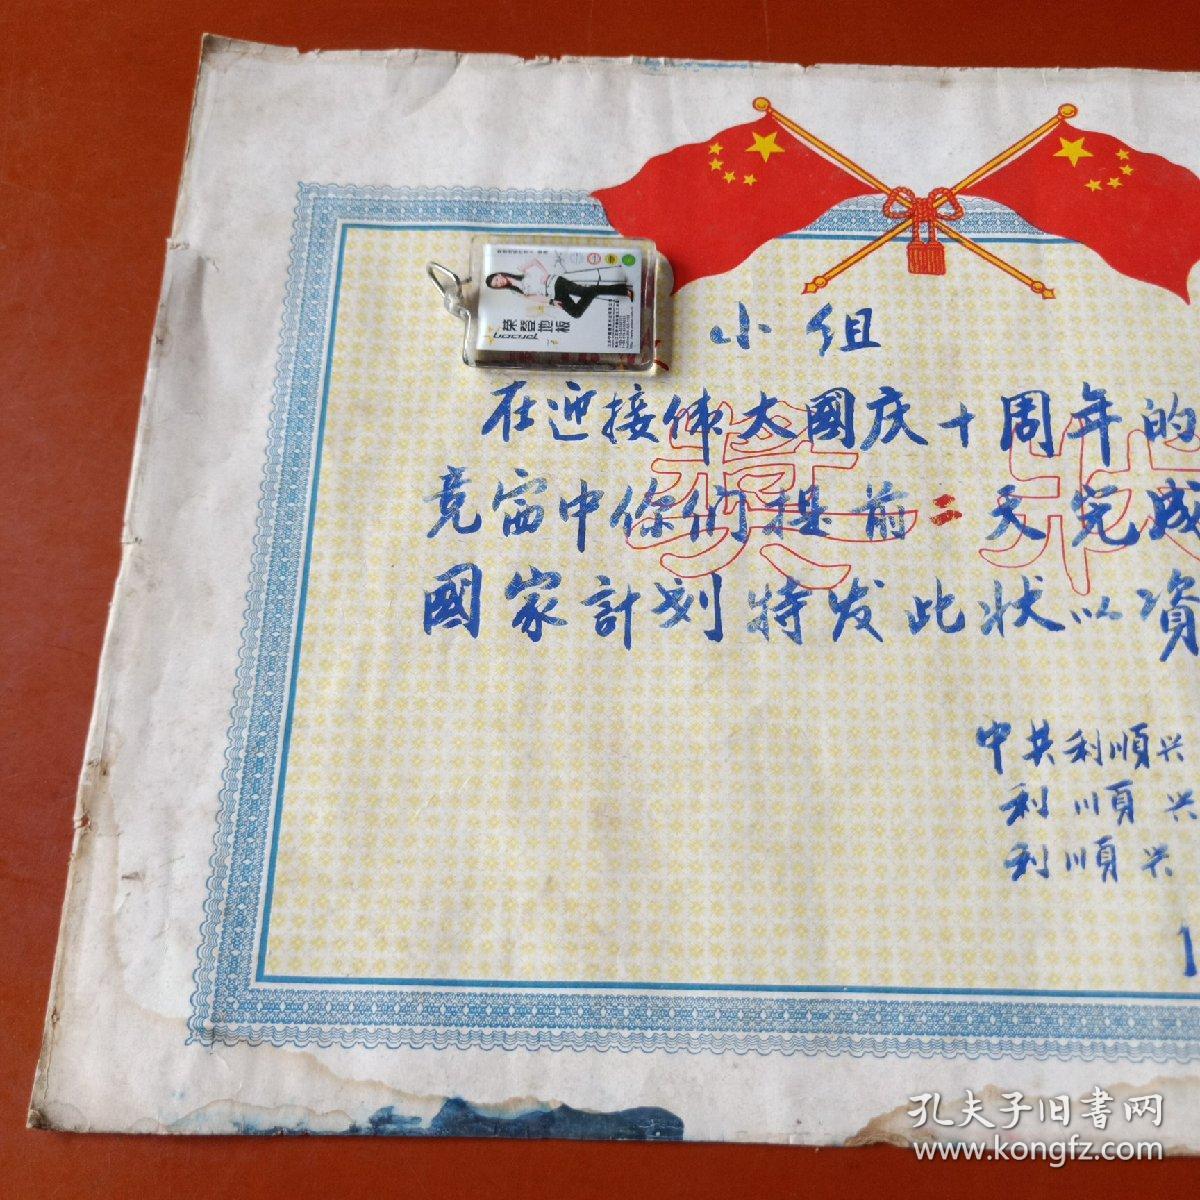 荣登地板
小组
在迎接伟大國庆十周年的
竞窗中你们提前二天完成
國家計划特发此状以资
奖状
中共利順兴
利順兴
利順兴
1
孔夫子旧書网
www.kongfz.com